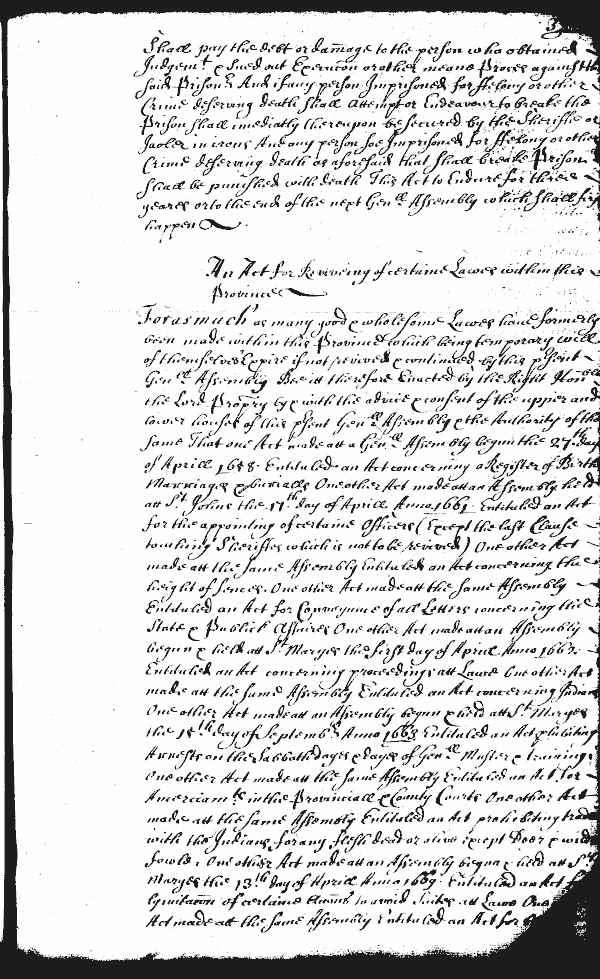 Shall pay the debt or damage to the person who obtained
Judgemt & sued out Execucon or other means Proces against the
said Prisonr And if any person Imprisoned for ffelony or other
Crime deserving death shall attempt or Endeavour to breake the
Prison shall imediatly thereupon be secured by the Sheriffe or
Jaoler in irons And any person soe Imprisoned for ffelony or other
Crime deserving death as aforesaid that shall breake Prison
shall be punished with death This Act to Endure for three
yeares or to the end of the next Genll Assembly which shall first
happen
An Act for Reviveing of certaine Lawes within this
Province
Forasmuch as many good & wholesome Lawes have formerly
been made within this Province which being temporary will
of themselves Expire if not revived & continued by this psent
Genll Assembly Bee itt therefore Enacted by the Right Honble
the Lord Propry by & with the advice & consent of the upper and
lower houses of this psent Genll Assembly & the Authority of the
same That one Act made att a Genll Assembly begun the 27 day
of Aprill 1658 Entituled an Act concerning a Register of Births
Marriages & burialls One other Act made att an Assembly held
att St Johns the 17th day of Aprill Anno 1661 Entituled an Act
for the appointing of certaine Officers (Except the last Clause
touching Sheriffes which is not to be revived) One other Act
made att the same Assembly Entituled an Act concerning the
height of fences One other Act made att the same Assembly
Entituled an Act for Conveyance of all Letters concerning the
State & Publick Affaires One other Act made att an Assembly
begun & held att St Maryes the first day of Aprill Anno 1662
Entituled an Act concerning proceedings att Lawe One other Act
made att the same Assembly Entituled an Act concerning Indians
One other Act made att an Assembly begun & held att St Maryes
the 15th day of Septembr Anno 1663 Entituled an Act phibiting
Arrests on the Sabbath dayes & dayes of Genll Muster & training
One other Act made att the same Assembly Entituled an Act for
Amerciamts in the Provinciall & County Courts One other Act
made att the same Assembly Entituled an Act prohibiting trade
with the Indians for any flesh dead or alive except Deer & wild
fowle One other Act made att an Assembly begun & held att St
Maryes the 13th day of Aprill Anno 1669 Entituled an Act for
lymitacon of certaine to avoid Suites att Lawe One
Act made att the same Assembly Entituled an Act for